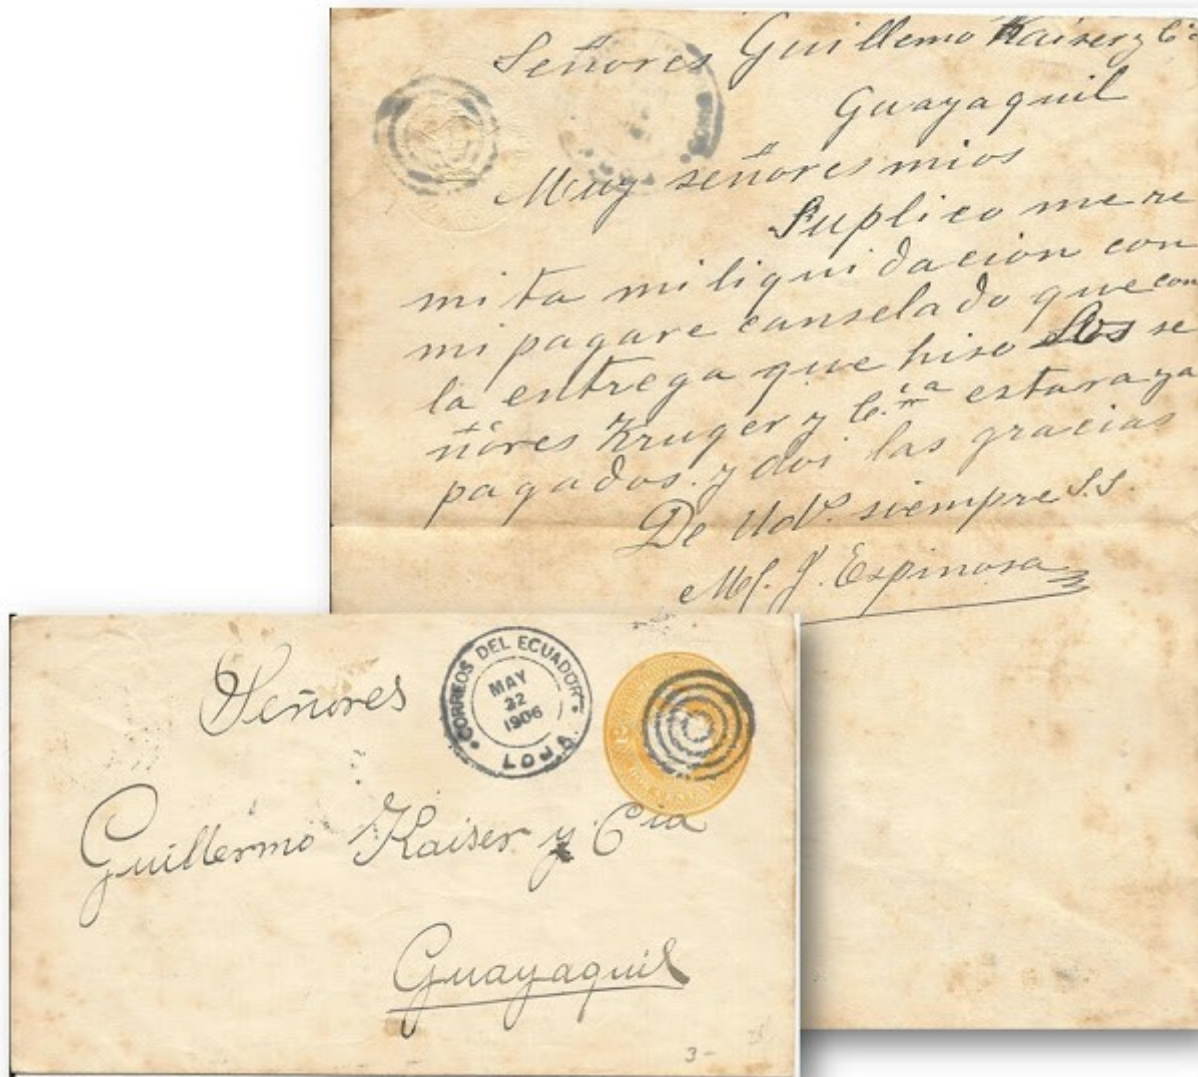 Señores Guillemo Kaiser y Cia
Guayaquil
Muy señores mios
Suplico me re
mita mi liquidacion con
mi pagare canselado que con
la entrega que hiso los se
ñores Kruger y C.ia estara ya
pagados. y doi las gracias
De Uds. siempre S.S.
Ml. J. Espinosa
Señores
CORREOS DEL ECUADOR
MAY
22
1906
LOJA
Guillermo Kaiser y Cia
Guayaquil
3-